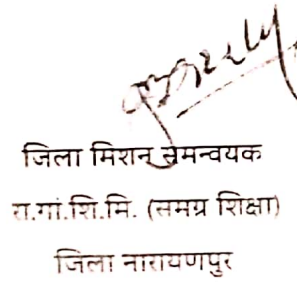 जिला मिशन समन्वयक
रा.गां.शि.मि. (समग्र शिक्षा)
जिला नारायणपुर